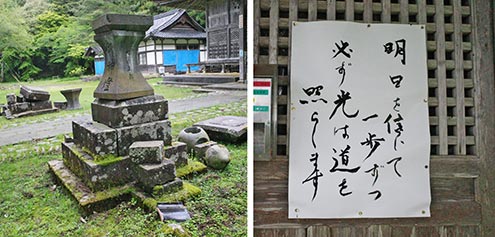 明日を信じて
一歩ずつ
必ず光は道を
照らします